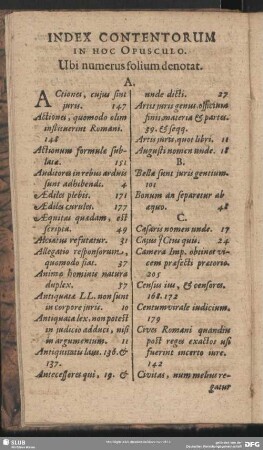 INDEX CONTENTORUM
IN HOC OPUSCULO.
Ubi numerus folium denotat.
A.
ACtiones, cujus sint
juris. 147
Actiones, quomodo olim
instituerint Romani.
148
Actionum formulæ sub-
latæ. 151
Auditores in rebus arduis
sunt adhibendi. 4
Ædiles plebis. 171
Ædiles curules. 177
Æquitas quædam, est
scripta. 49
Alciatus refutatur. 31
Allegatio responsorum,
quomodo fiat. 37
Animæ hominis natura
duplex. 57
Antiquatæ LL. non sunt
in corpore juris. 10
Antiquata lex, non potest
in judicio adduci, nisi
in argumentum. 11
Antiquitatis laus. 136. &
137.
Antecessores qui, 19. &
unde dicti. 27
Artis juris genus, officium
finis, materia & partes.
39. & seqq.
Artis juris, quot libri. 11
Augusti nomen unde. 18
B.
Bella sint juris gentium.
101
Bonum an separetur ab
æquo. 48
C.
Cæsaris nomen unde. 17
Casus JCtus quis. 24
Cameræ Imp. obtinet vi-
cem præfecti prætorio.
205
Census ius, & censores.
168. 172
Centumvirale iudicium.
179
Cives Romani quandiu
post reges exactos usi
fuerint incerto iure.
142
Civitas, num melius re-
gatur
SLUB
DFG